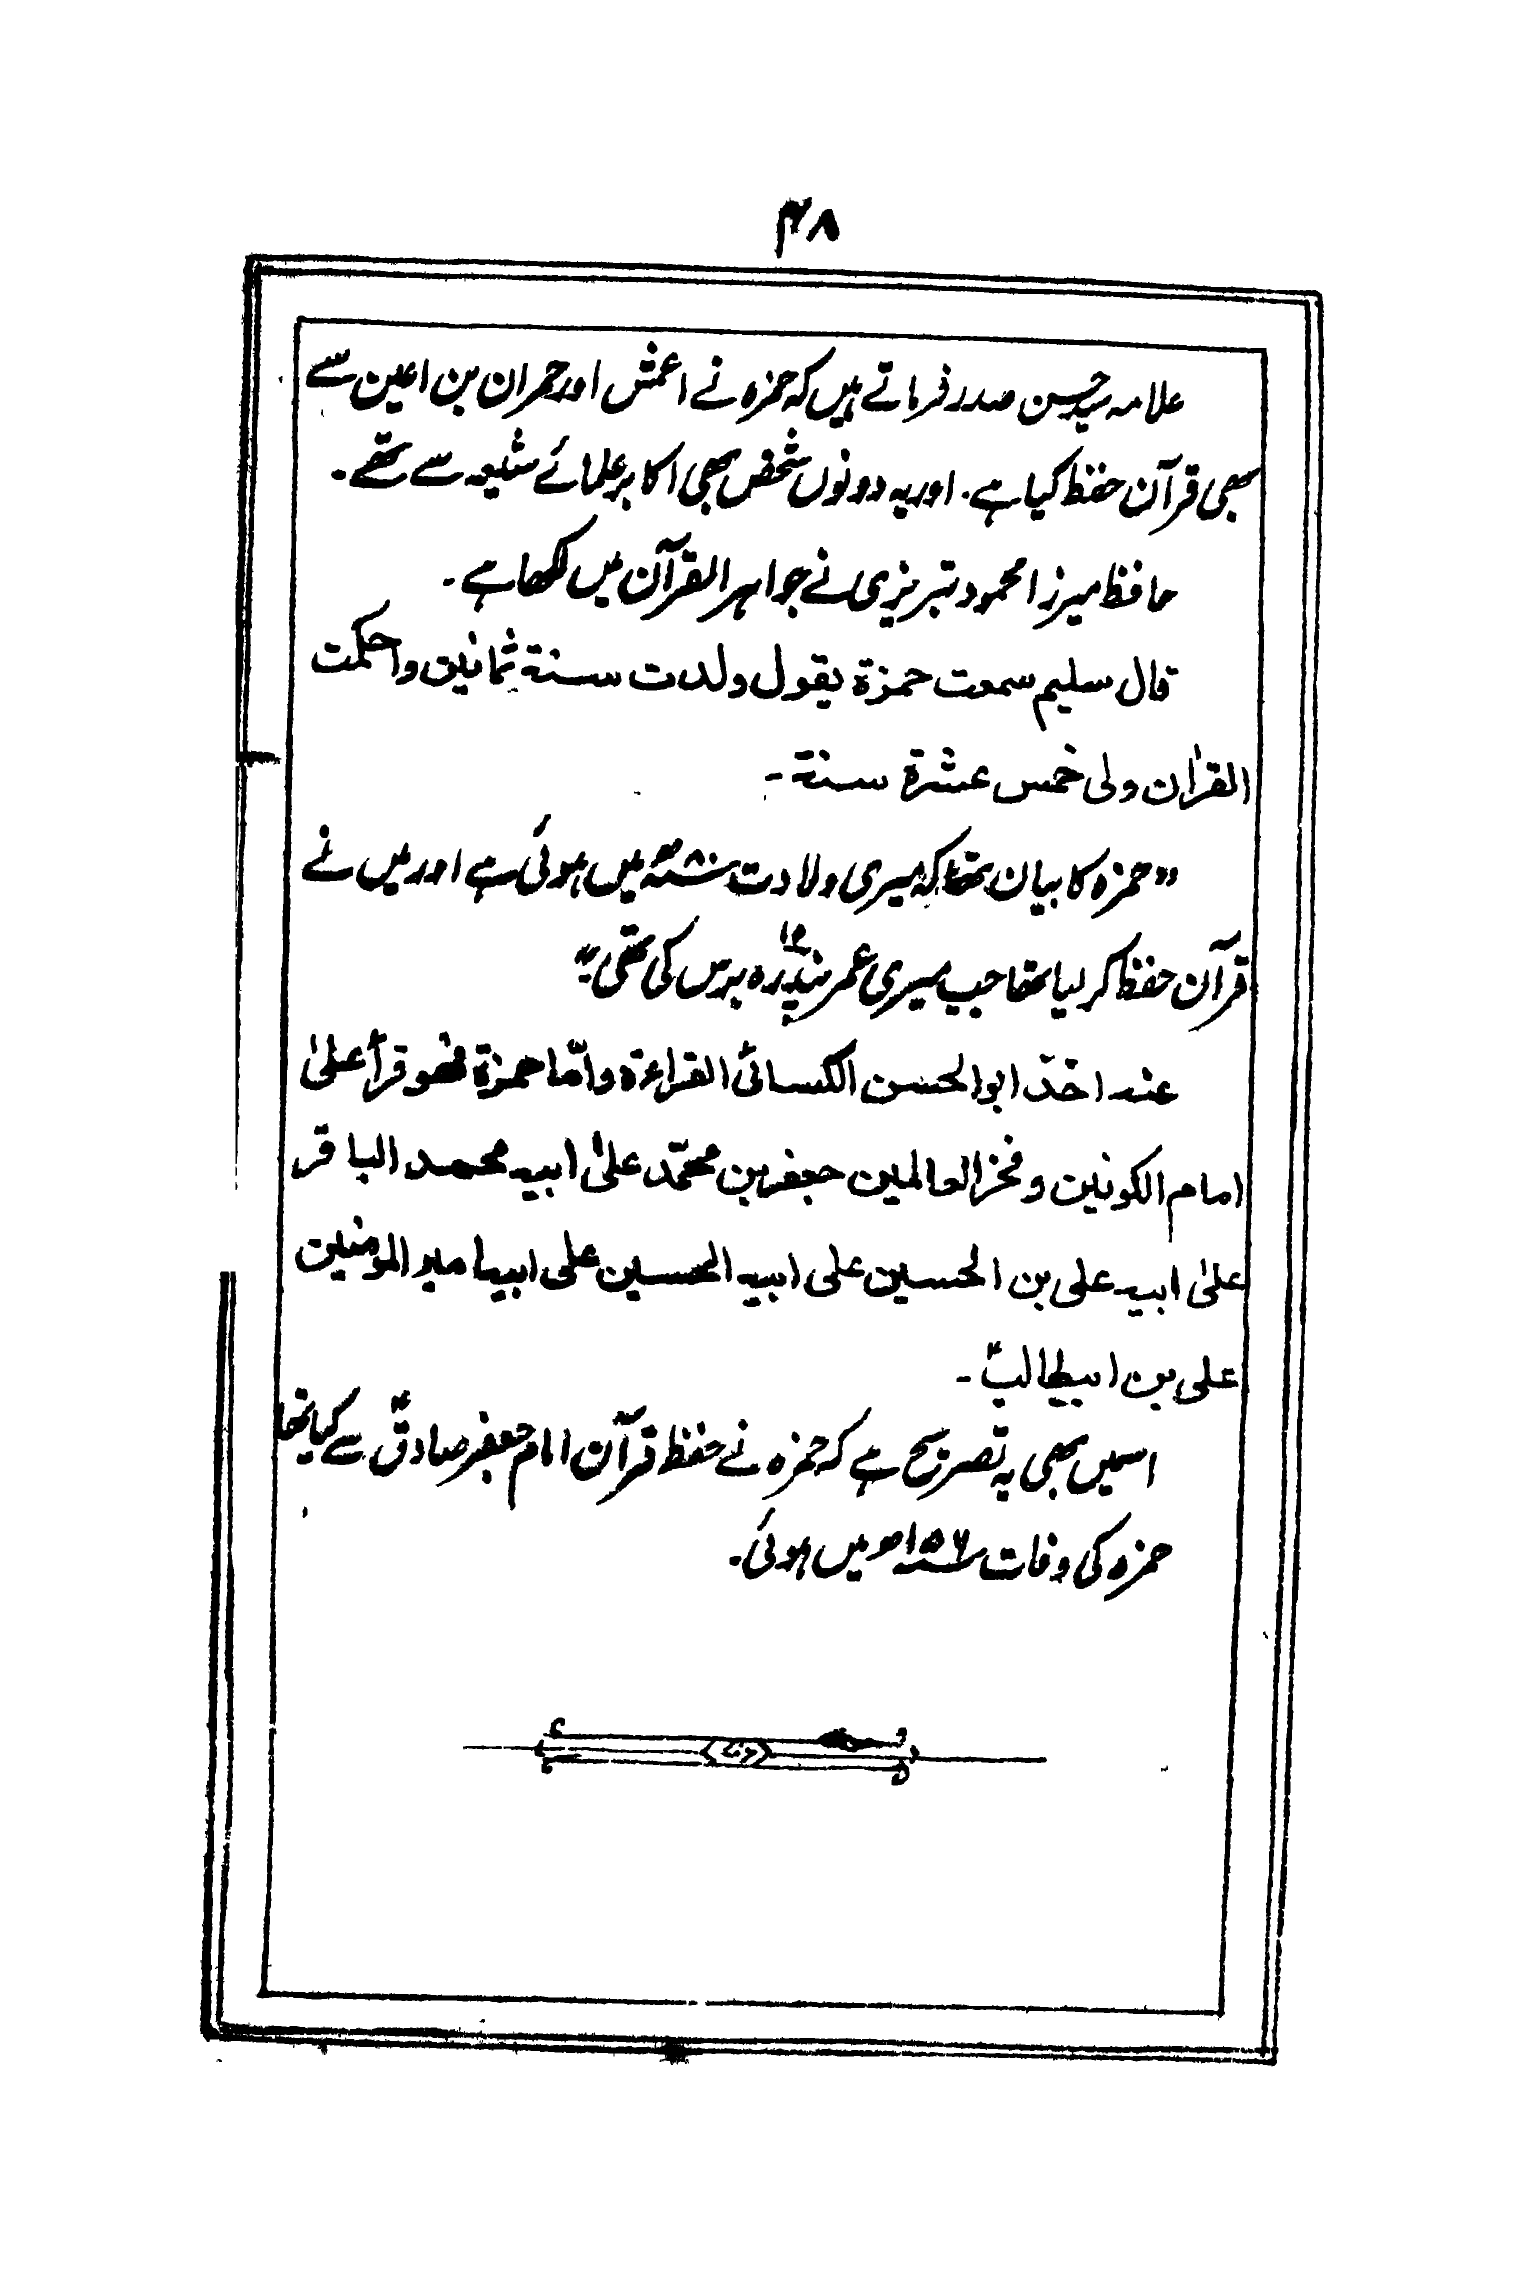 ۴۸
علامہ سید حسن صدر فرماتے ہیں کہ حمزہ نے اعمش اور حمران بن اعین سے
بھی قرآن حفظ کیا ہے۔ اور یہ دونوں شخص بھی اکابر علمائے شیعہ سے تھے۔
حافظ میرزا محمود تبریزی نے جواہر القرآن میں لکھا ہے۔
قال سلیم سمعت حمزة یقول ولدت سنة ثمانین واحکمت
القراٰن ولی خمس عشرة سنة۔
”حمزہ کا بیان تھا کہ میری ولادت سنہ ۸۰ھ میں ہوئی ہے اور میں نے
قرآن حفظ کر لیا تھا جب میری عمر پندرہ ۱۵ برس کی تھی“
عنہ اخذ ابوالحسن الکسائی القراءة وامّا حمزة فھو قرأ علیٰ
امام الکونین وفخر العالمین جعفر بن محمّد علیٰ ابیه محمد الباقر
علیٰ ابیه علی بن الحسین علی ابیه الحسین علی ابیه امیر المومنین
علی بن ابیطالبؑ۔
اسمیں بھی یہ تصریح ہے کہ حمزہ نے حفظ قرآن امام جعفر صادقؑ سے کیا تھا
حمزہ کی وفات سنہ ۱۵۶ھ میں ہوئی۔